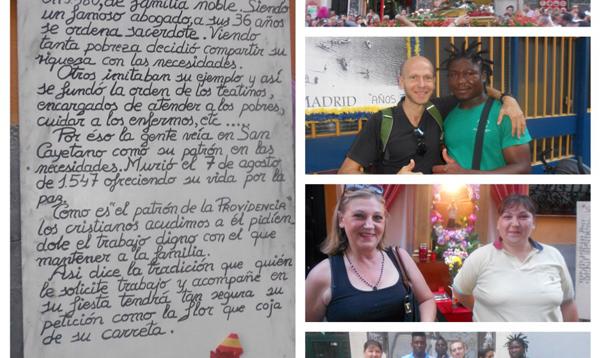 de familia noble. Siendo
un famoso abogado, a sus 36 años
se ordena sacerdote. Viendo
tanta pobreza decidió compartir su
riqueza con las necesidades.
Otros imitaban su ejemplo y así
se fundó la orden de los teatinos,
encargados de atender a los pobres,
cuidar a los enfermos, etc ....
Por éso la gente veía en San
Cayetano como su patrón en las
necesidades. Murió el 7 de agosto
de 1.547 ofreciendo su vida por la
paz.
Como es "el patrón de la PROVIDENCIA"
los cristianos acudimos a él pidien_
dole el trabajo digno con el que
mantener a la familia.
Así dice la tradición que quién
le solicite trabajo y acompañe en
su fiesta tendrá tan segura su
petición como la flor que coja
de su carreta.
MADRID
"AÑOS